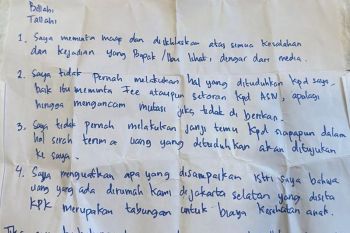 Billahi
Tallahi
1. Saya meminta maap dan diikhlaskan atas semua kesalahan
dan kejadian yang Bapak/Ibu lihat, dengar dari media.
2. Saya tidak pernah melakukan hal yang dituduhkan kpd saya,
baik itu meminta Fee ataupun setoran kpd ASN, apalagi
hingga mengancam mutasi jika tidak di berikan.
3. Saya tidak pernah melakukan janji temu kpd siapapun dalam
hal serah terima uang yang dituduhkan akan ditujukan
ke saya.
4. Saya menguatkan apa yang disampaikan istri saya bahwa
uang yang ada dirumah kami di Jakarta selatan yang disita
KPK merupakan tabungan untuk biaya kesehatan anak.